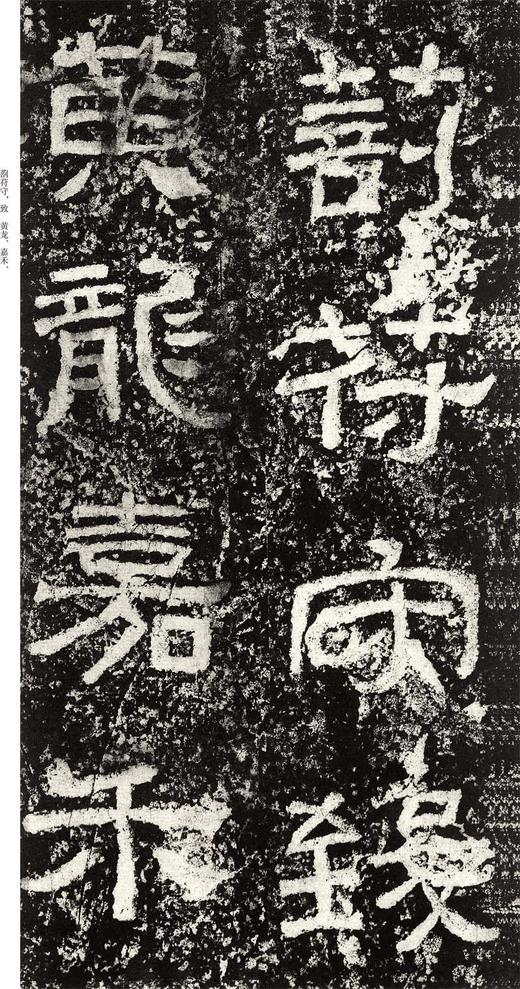 剖苻守致
黃龍嘉禾
剖苻守，致　黄龙、嘉禾、